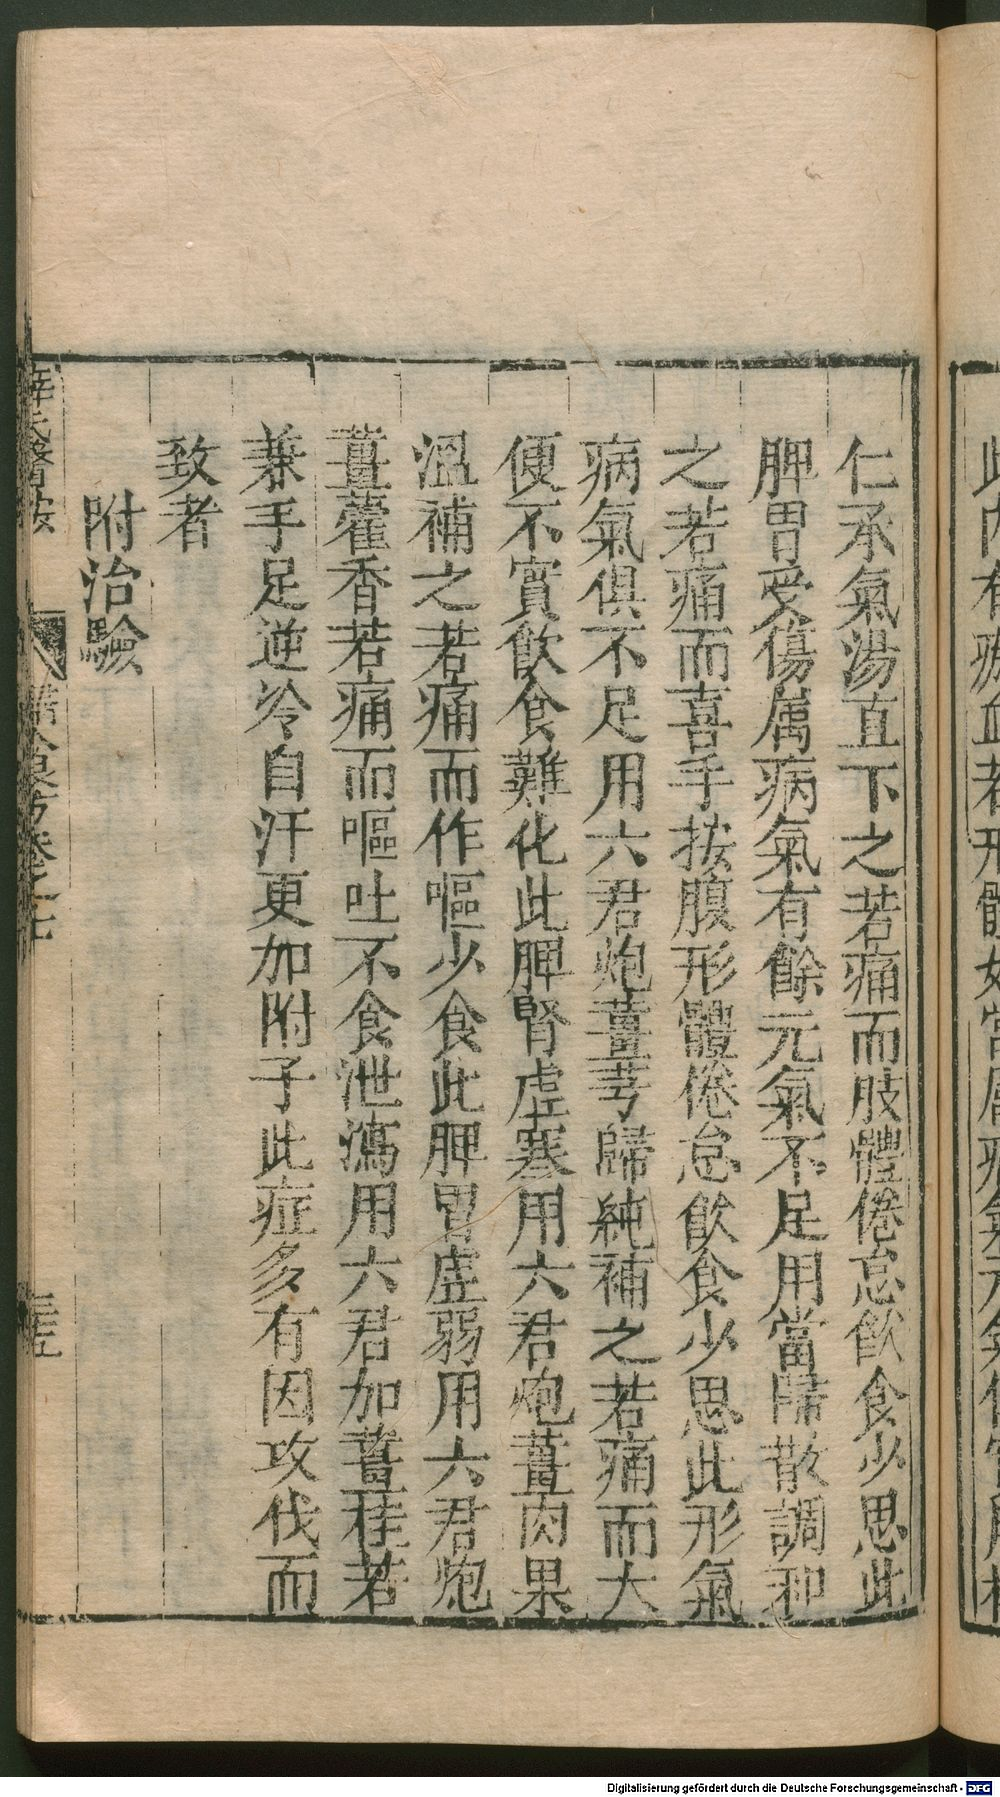 仁承氣湯直下之若痛而肢體倦怠飲食少思此
脾胃受傷属病氣有餘元氣不足用當歸散調和
之若痛而喜手按腹形體倦怠飲食少思此形氣
病氣俱不足用六君炮薑芎歸純補之若痛而大
便不實飲食難化此脾腎虛寒用六君炮薑肉果
溫補之若痛而作嘔少食此脾胃虛弱用六君炮
薑藿香若痛而嘔吐不食泄瀉用六君加薑桂若
兼手足逆冷自汗更加附子此症多有因攻伐而
致者
附治驗
Digitalisierung gefördert durch die Deutsche Forschungsgemeinschaft - DFG